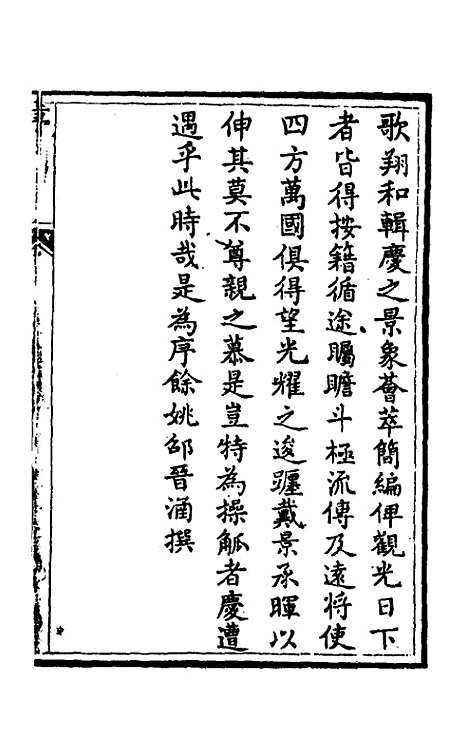 歌翔和輯慶之景象薈萃簡編俾觀光日下
者皆得按籍循途矚瞻斗極流傳及遠將使
四方萬國俱得望光耀之逡躔戴景承暉以
伸其莫不尊親之慕是豈特為操觚者慶遭
遇乎此時哉是為序餘姚邵晉涵撰